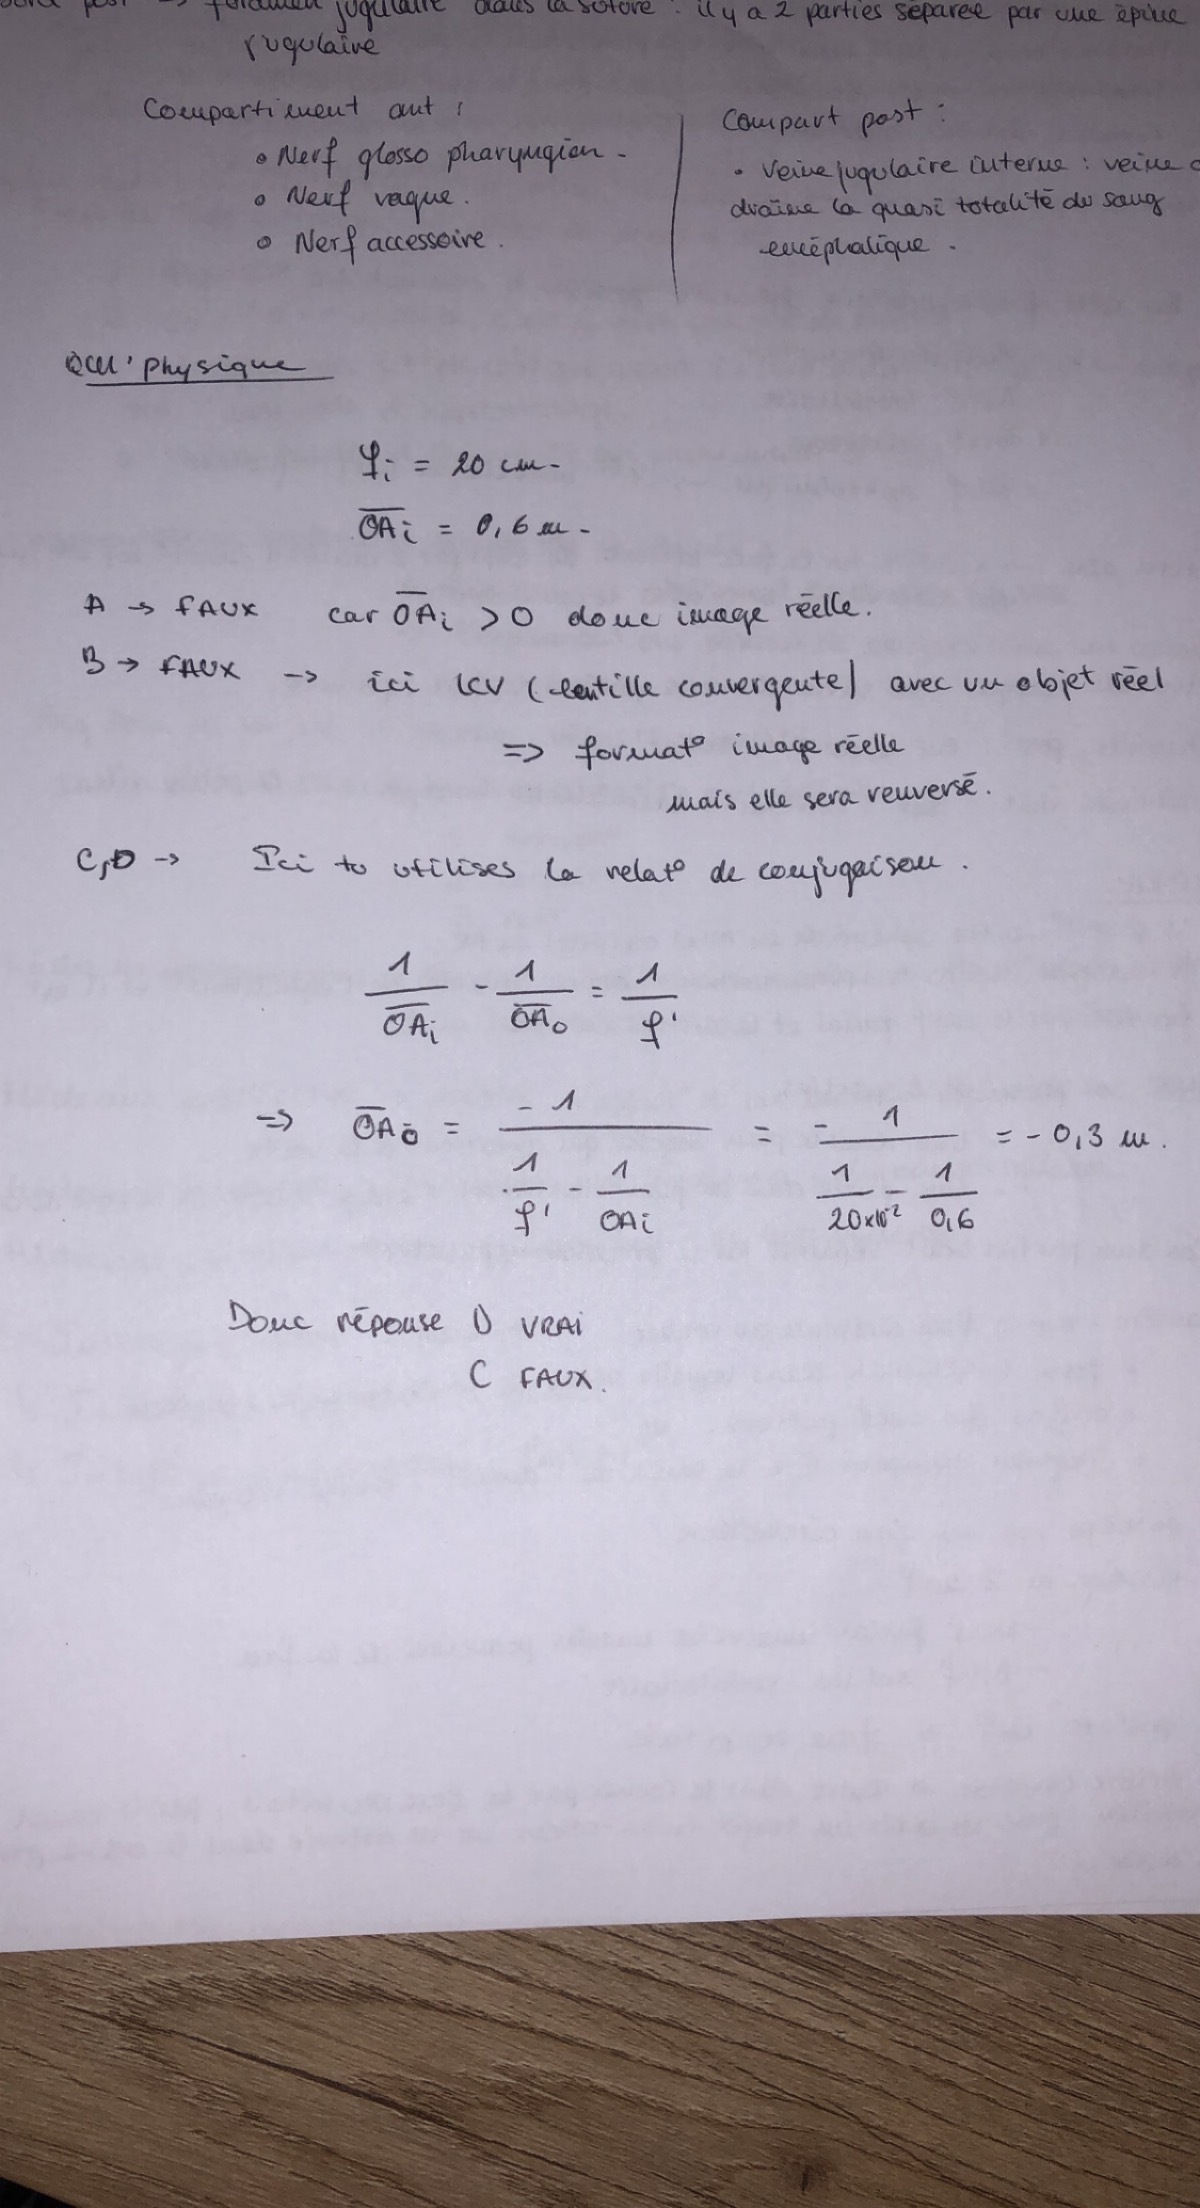 post → foramen jugulaire dans la suture : il y a 2 parties séparée par une épine
jugulaire
Compartiment ant :
• Nerf glosso pharyngien -
• Nerf vague.
• Nerf accessoire.
Compart post :
• Veine jugulaire interne : veine
draine la quasi totalité du sang
encéphalique.
QCM' physique
fi = 20 cm -
OAi = 0,6 m -
A → FAUX car OAi > 0 donc image réelle.
B → FAUX → ici LCV (lentille convergente) avec un objet réel
=> format° image réelle
mais elle sera renversé.
C,D → Ici tu utilises la relat° de conjugaison.
1/OAi - 1/OAo = 1/f'
=> OAo = -1/(1/f' - 1/OAi) = -1/(1/20x10^-2 - 1/0,6) = -0,3 m.
Donc réponse D VRAI
C FAUX.